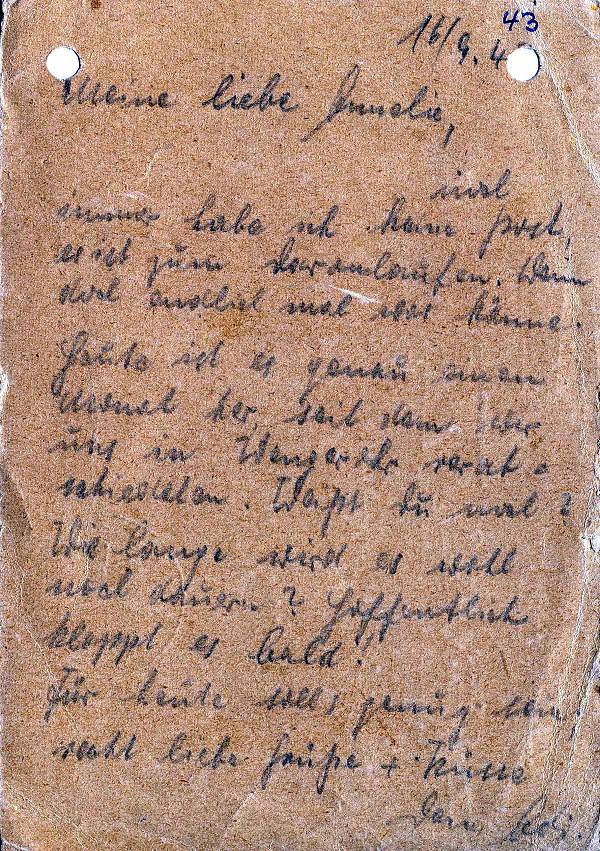 43
16/9.4
Meine liebe Annelie,
noch
immer habe ich keine Post,
es ist zum davonlaufen. Wenn
doch endlich mal was käme.
Heute ist es genau einen
Monat her, seit dem wir
uns in Wengerohr verab-
schiedeten. Weißt Du noch?
Wie lange wird es wohl
noch dauern? Hoffentlich
klappt es bald!
Für heute solls genug sein,
recht liebe Grüße + Küsse
Dein